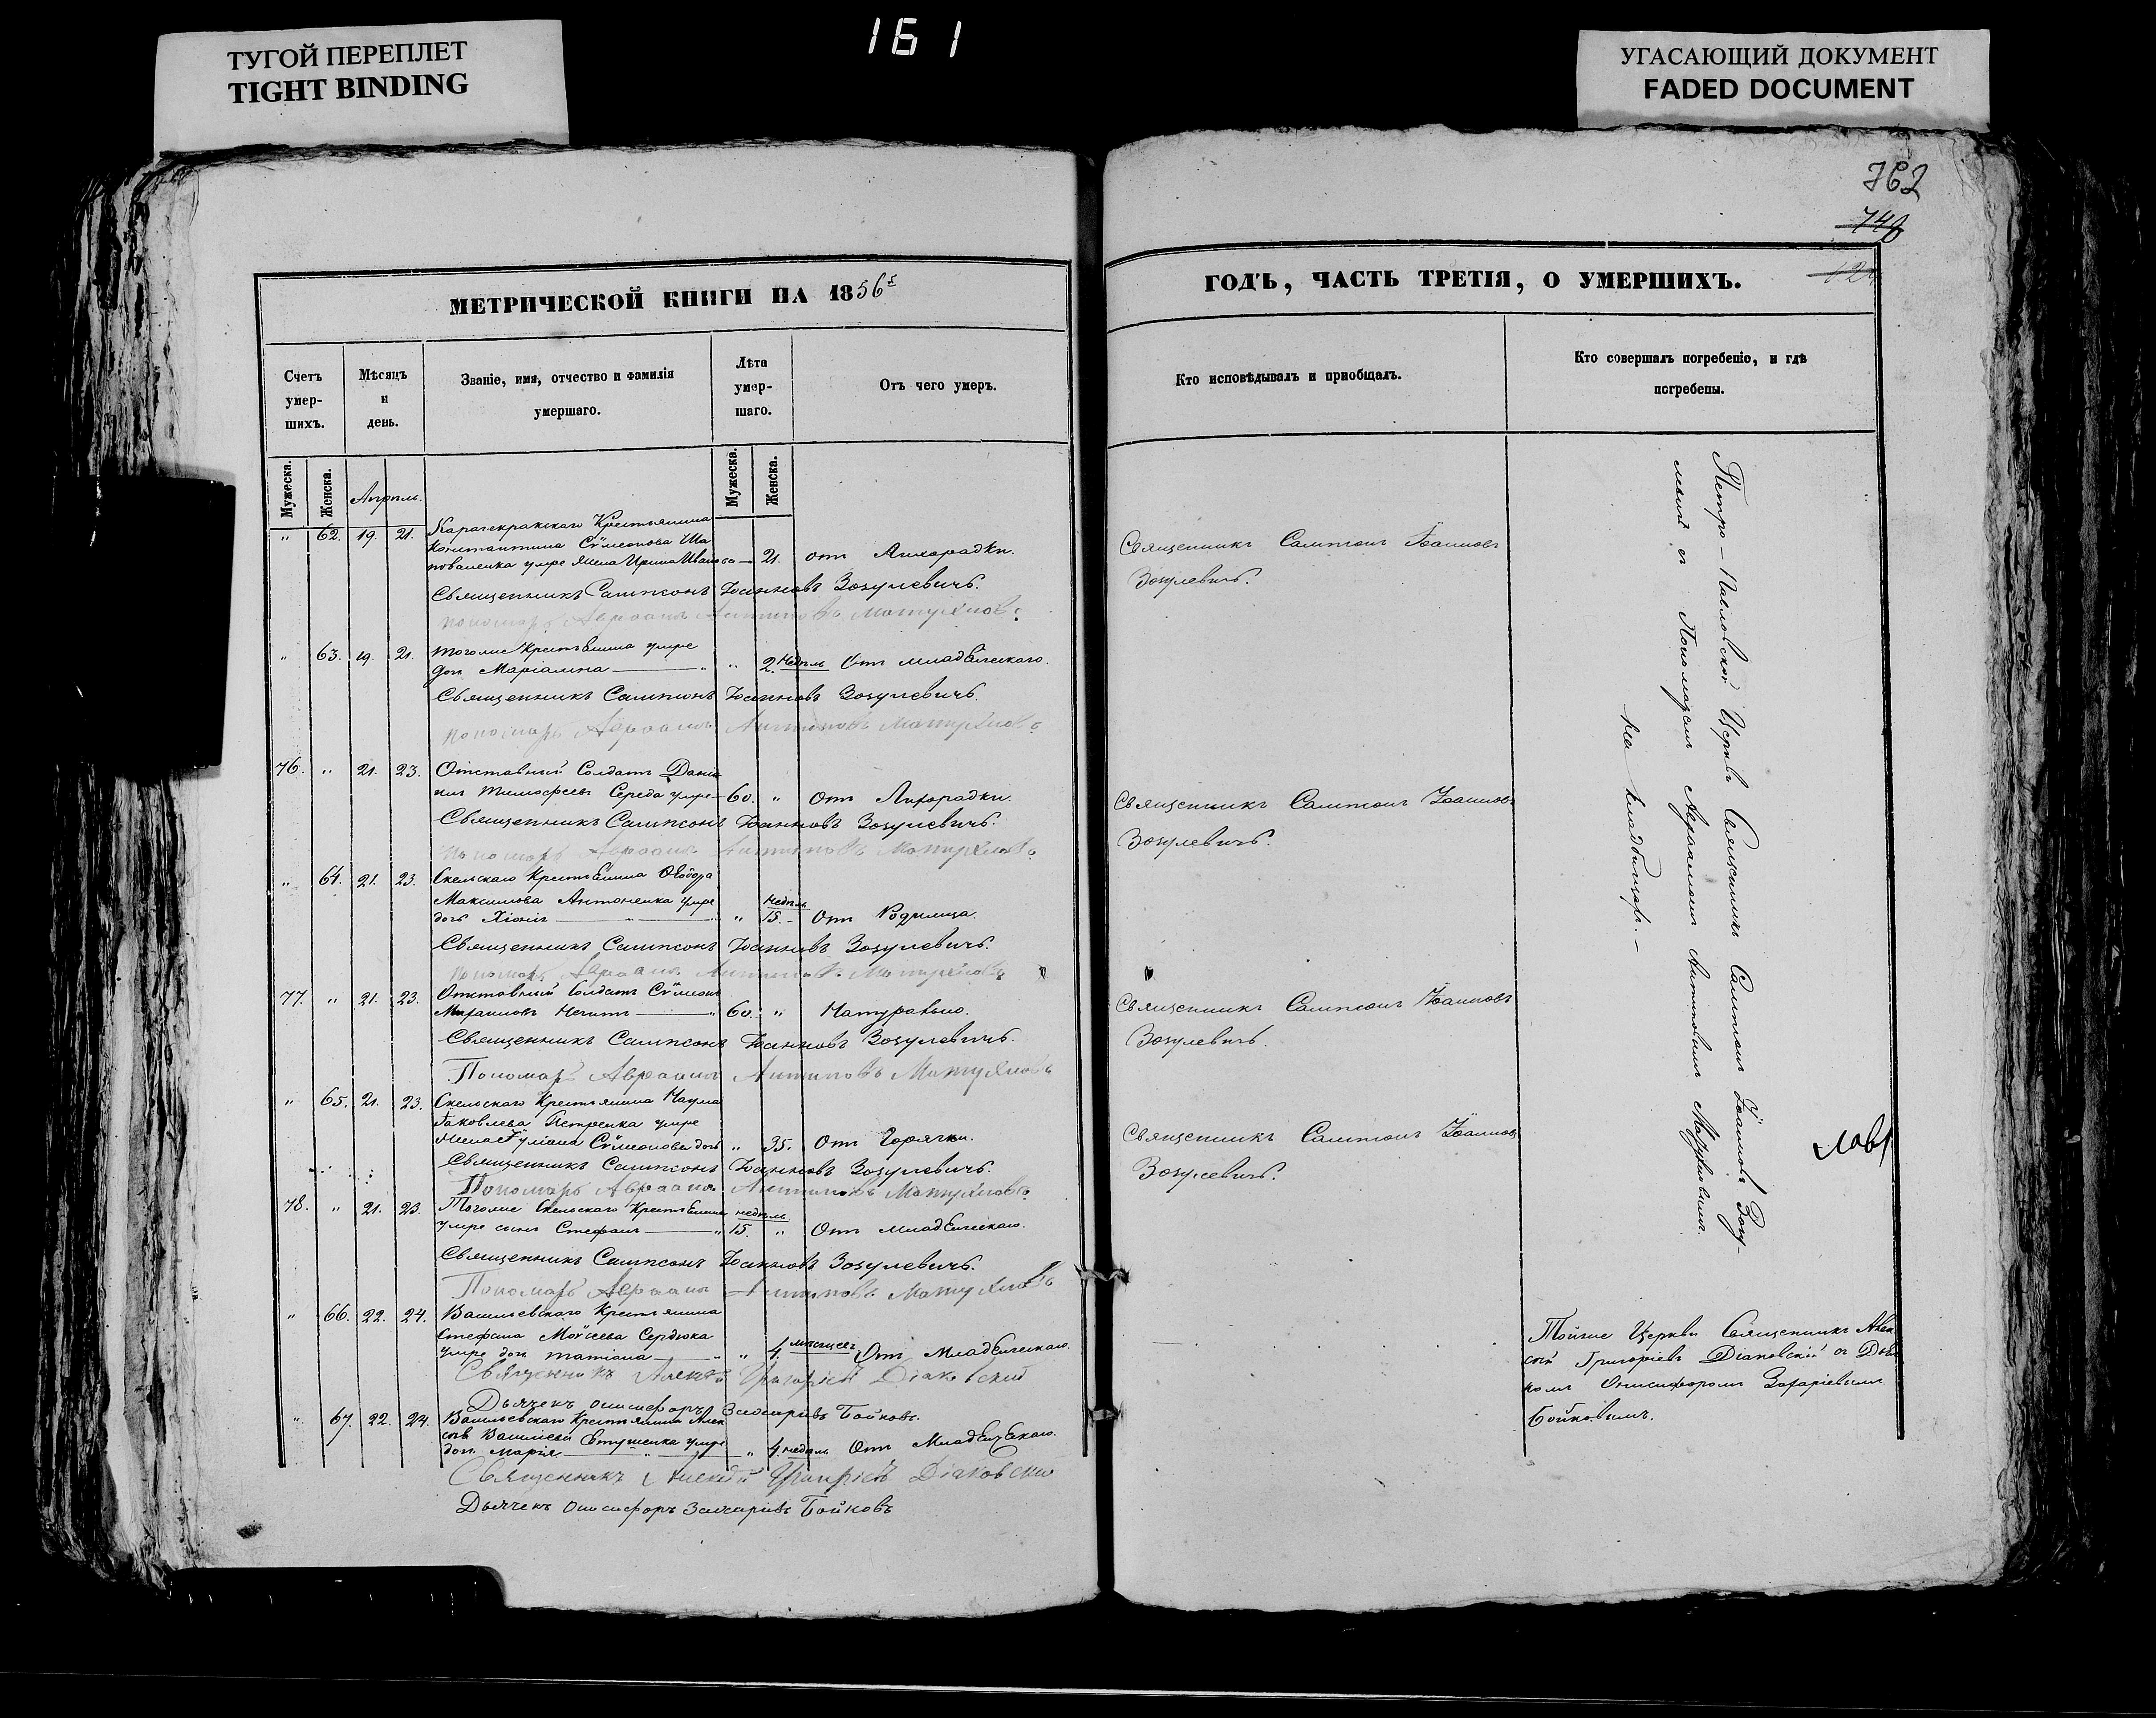 161
ТУГОЙ ПЕРЕПЛЕТ
TIGHT BINDING
УГАСАЮЩИЙ ДОКУМЕНТ
FADED DOCUMENT
762
748
МЕТРИЧЕСКОЙ КНИГИ НА 1856
Счетъ умер-шихъ.
Мѣсяцъ и день.
Званіе, имя, отчество и фамилія умершаго.
Лѣта умер-шаго.
Отъ чего умеръ.
Мужеска. Женска. Апрѣль. Мужеска. Женска.
" 62. 19. 21. Крестьянина
Константина Сѵмеонова Ша
поваленка умре жена Ирина Иванова — 21. отъ Лихорадки.
Священникъ Сампсонъ Іоанновъ Зозулевичъ.
пономарь Авраамъ Антиповъ
" 63. 19. 21. Тогоже Крестьянина умре
дочь Маріамна " " 2. недѣль Отъ младенческаго.
Священникъ Сампсонъ Іоанновъ Зозулевичъ.
пономарь Авраамъ Антиповъ
76. " 21. 23. Отставный Солдатъ Дані
илъ Тимофеевъ Середа умре 60. " Отъ Лихорадки.
Священникъ Сампсонъ Іоанновъ Зозулевичъ.
пономарь Авраамъ Антиповъ
" 64. 21. 23. Скельскаго Крестьянина Ѳеодора
Максимова Антоненка умре
дочь Хіонія " " недѣль 15. - Отъ Родимца.
Священникъ Сампсонъ Іоанновъ Зозулевичъ.
пономарь Авраамъ Антиповъ
77. " 21. 23. Отставный Солдатъ Сѵмеонъ
Михаиловъ " 60. " Натурально.
Священникъ Сампсонъ Іоанновъ Зозулевичъ.
Пономарь Авраамъ Антиповъ
" 65. 21. 23. Скельскаго Крестьянина Наума
Іаковлева Петренка умре
жена Іуліана Сѵмеонова дочь " 35. Отъ Горячки.
Священникъ Сампсонъ Іоанновъ Зозулевичъ.
Пономарь Авраамъ Антиповъ
78. " 21. 23. Тогоже Скельскаго Крестьянина
умре сынъ Стефанъ " недѣль 15. " Отъ младенческаго.
Священникъ Сампсонъ Іоанновъ Зозулевичъ.
Пономарь Авраамъ Антиповъ
" 66. 22. 24. Васильевскаго Крестьянина
Стефана Моѵсеева Сердюка
умре дочь Татіана " " 4. мѣсяцевъ Отъ Младенческаго.
Священникъ Алексѣй Григоріевъ Діаковскій
Дьячекъ Онисифоръ Захаріевъ Бойковъ.
" 67. 22. 24. Васильевскаго Крестьянина Алек
сѣя Василіева Евтушенка умре
дочь Марія " " 4. недѣль Отъ Младенческаго.
Священникъ Алексѣй Григоріевъ Діаковскій
Дьячекъ Онисифоръ Захаріевъ Бойковъ
ГОДЪ, ЧАСТЬ ТРЕТІЯ, О УМЕРШИХЪ.
Кто исповѣдывалъ и пріобщалъ.
Кто совершалъ погребеніе, и гдѣ погребены.
Священникъ Сампсонъ Іоанновъ
Зозулевичъ.
Священникъ Сампсонъ Іоанновъ
Зозулевичъ.
Священникъ Сампсонъ Іоанновъ
Зозулевичъ.
Священникъ Сампсонъ Іоанновъ
Зозулевичъ.
Петро-Павловской Церкви Священникъ Сампсонъ Іоанновъ Зозу-
левичъ съ Пономаремъ Авраамомъ Антиповымъ
на кладбищѣ. -
Тойже Церкви Священникъ Алек
сѣй Григоріевъ Діаковскій съ Дьяч
комъ Онисифоромъ Захаріевымъ
Бойковымъ.